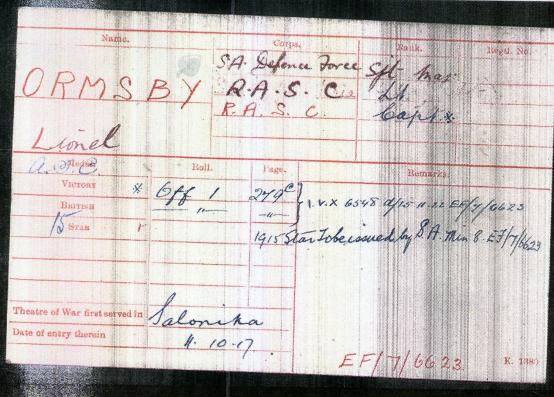 Name. Corps. Rank. Regtl. No.
S.A. Defence Force
ORMSBY R.A.S.C Lt
R.A.S.C. Capt *
Lionel
Medal. Roll. Page. Remarks.
VICTORY * Off 1 279c I.V.X 6548 d/15.11.22 EF/7/6623
BRITISH " " "
15 STAR r 1915 Star to be issued by S.A. Min 8. EF/7/6623
Theatre of War first served in Salonika
Date of entry therein 11.10.17.
EF/7/6623 K. 1380